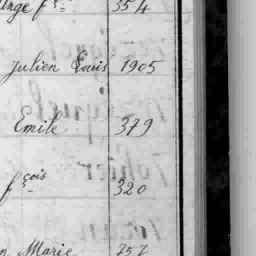 Ange fs 354
Julien Louis 1905
Emile 379
fçois 320
Marie 757